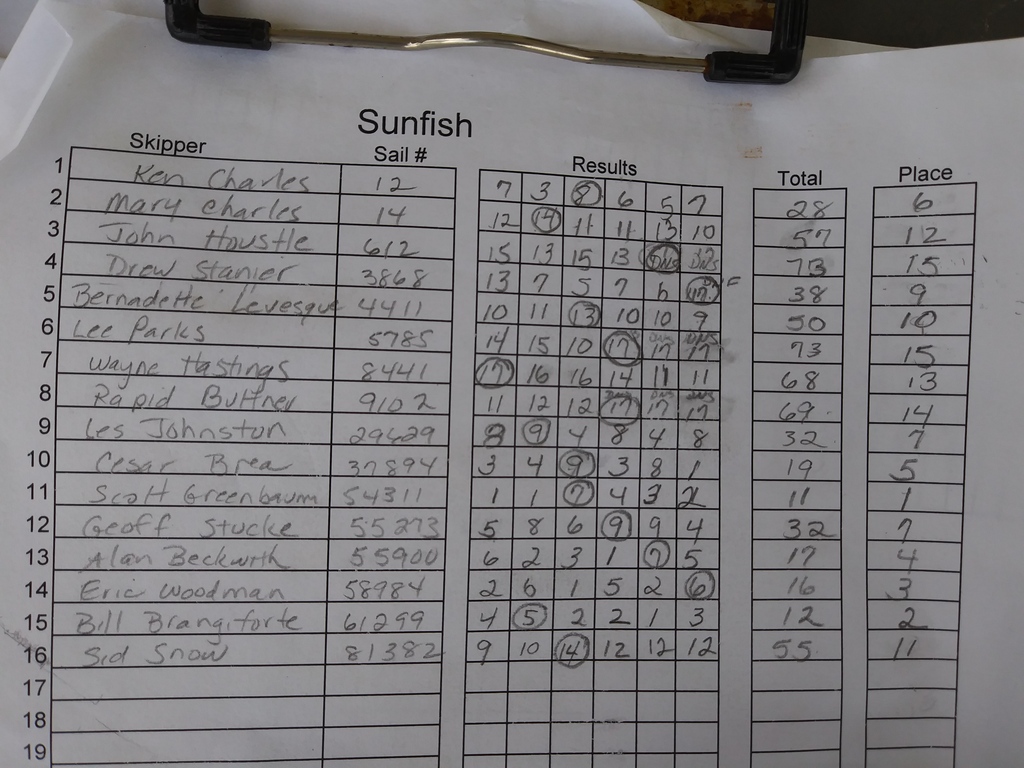 Sunfish
Skipper Sail # Results Total Place
1 Ken Charles 12 7 3 8 6 5 7 28 6
2 Mary Charles 14 12 14 11 11 13 10 57 12
3 John Houstle 612 15 13 15 13 DNS 17 DNS 73 15
4 Drew Stanier 3868 13 7 5 7 6 17 38 9
5 Bernadette Levesque 4411 10 11 13 10 10 9 50 10
6 Lee Parks 5785 14 15 10 17 DNS 17 DNS 17 73 15
7 Wayne Hastings 8441 17 16 16 14 11 11 68 13
8 Rapid Buttner 9102 11 12 12 DNS 17 DNS 17 DNS 17 69 14
9 Les Johnston 29629 8 9 4 8 4 8 32 7
10 Cesar Brea 37894 3 4 9 3 8 1 19 5
11 Scott Greenbaum 54311 1 1 7 4 3 2 11 1
12 Geoff Stucke 55273 5 8 6 9 9 4 32 7
13 Alan Beckwith 55900 6 2 3 1 7 5 17 4
14 Eric Woodman 58984 2 6 1 5 2 6 16 3
15 Bill Brangiforte 61299 4 5 2 2 1 3 12 2
16 Sid Snow 81382 9 10 14 12 12 12 55 11
17
18
19